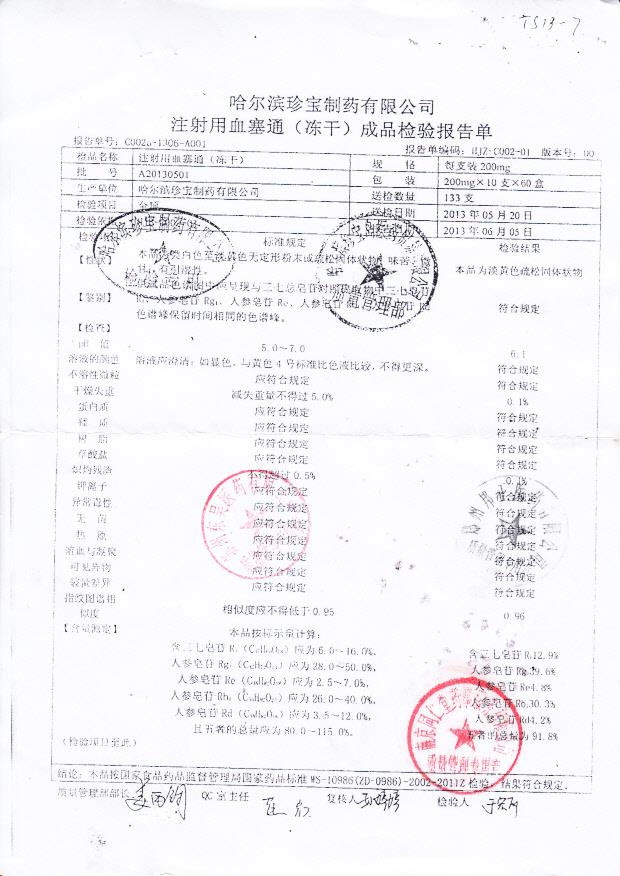 TS13-7
哈尔滨珍宝制药有限公司
注射用血塞通（冻干）成品检验报告单
报告单号：C002a-1306-A001 报告单编码：HJZ-C002-01 版本号：00
检品名称 注射用血塞通（冻干） 规 格 每支装 200mg
批 号 A20130501 包 装 200mg×10 支×60 盒
生产单位 哈尔滨珍宝制药有限公司 送检数量 133 支
检验项目 全项 送检日期 2013 年 05 月 20 日
检验依据 2013 年 06 月 05 日
标准规定 检验结果
【性状】 本品为类白色至淡黄色无定形粉末或疏松固体状物，味苦、 本品为淡黄色疏松固体状物
有引湿性。
供试品色谱图中应呈现与三七总皂苷对照提取物中三七皂苷
【鉴别】 人参皂苷 Rg₁、人参皂苷 Re、人参皂苷 符合规定
色谱峰保留时间相同的色谱峰。
【检查】
pH 值 5.0～7.0 6.1
溶液的颜色 溶液应澄清；如显色，与黄色 4 号标准比色液比较，不得更深。 符合规定
不溶性微粒 应符合规定 符合规定
干燥失重 减失重量不得过 5.0% 0.1%
蛋白质 应符合规定 符合规定
鞣 质 应符合规定 符合规定
树 脂 应符合规定 符合规定
草酸盐 应符合规定 符合规定
炽灼残渣 不得超过 0.5% 0.1%
钾离子 应符合规定 符合规定
异常毒性 应符合规定 符合规定
无 菌 应符合规定 符合规定
热 原 应符合规定 符合规定
溶血与凝聚 应符合规定 符合规定
可见异物 应符合规定 符合规定
装量差异 应符合规定 符合规定
指纹图谱相
似度 相似度应不得低于 0.95 0.96
【含量测定】 本品按标示量计算：
含三七皂苷 R₁ 应为 5.0～16.0%， 含三七皂苷 R₁12.9%
人参皂苷 Rg₁ 应为 28.0～50.0%， 人参皂苷 Rg₁39.6%
人参皂苷 Re 应为 2.5～7.0%， 人参皂苷 Re4.8%
人参皂苷 Rb₁ 应为 26.0～40.0%， 人参皂苷 Rb₁30.3%
人参皂苷 Rd 应为 3.5～12.0%， 人参皂苷 Rd4.2%
且五者的总量应为 80.0～115.0%。 五者的总量为 91.8%
（检验项目至此）
结论：本品按国家食品药品监督管理局国家药品标准 WS-10986(ZD-0986)-2002-2011Z 检验，结果符合规定。
质量管理部部长 QC 室主任 复核人 检验人